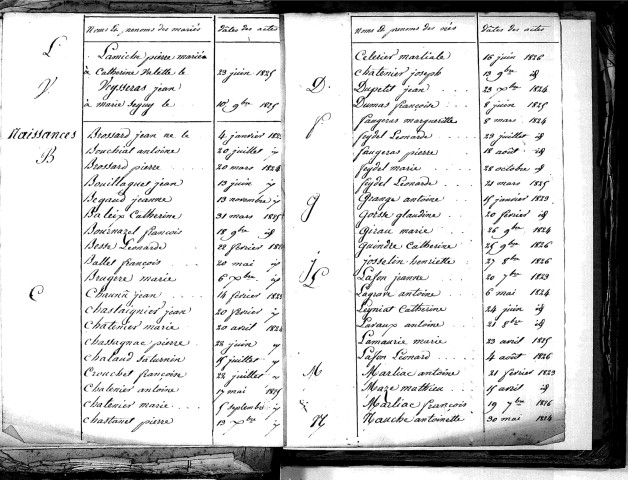 Noms & prenoms des mariés Dates des actes
L Lamiche pierre mariée
à Catherine Valette le 23 juin 1825
V Veysseras jean
à marie Seguy le 10 9bre 1825
Naissances Brossard jean né le 4 janvier
B Bouchiat antoine 20 juillet
Brossard pierre 20 mars 1824
Bouillaguet jean 13 juin
Begaud jeanne 13 novembre
Baleix Catherine 31 mars 1825
Bournazel françois 18 9bre
Besse Léonarde 22 février
Ballet françois 20 mai
Brugere marie 6 xbre
C jean 14 février 1823
Chastaignier jean 20 février
Chatenier marie 20 avril 1824
Chassagnac pierre 22 juin
Chalaud Saturnin 15 juillet
Crouchet françoise 22 juillet
Chatenier antoine 17 mai 1825
Chatenier marie 5 septembre
Chastanet pierre 13 xbre
Noms & prenoms des nés Dates des actes
Celerier martiale 16 juin 1826
Chatenier joseph 13 9bre id
D Dupetit jean 23 xbre 1824
Dumas françoise 8 juin 1825
F Faugeras marguerite 8 mars 1824
Feydel Léonard 29 juillet id
Faugeras pierre 18 août id
Feydel marie 28 octobre id
Feydel Léonarde 21 mars 1825
G Grange antoine 15 janvier 1823
Gorsse glaudine 20 février id
Girau marie 26 9bre 1824
Guindre Catherine 25 9bre 1826
J Josselin henriette 27 8bre 1826
L Lafon jeanne 20 7bre 1823
Lagrave antoine 6 mai 1824
Leyniat Catherine 24 juin id
Lavaux antoine 21 8bre id
Lamaurie marie 23 avril 1825
Lafon Léonard 4 août 1826
M Marliac antoine 21 février 1823
Maze mathieu 15 avril id
Marliac françois 19 7bre 1826
N Nauche antoinette 30 mai 1824